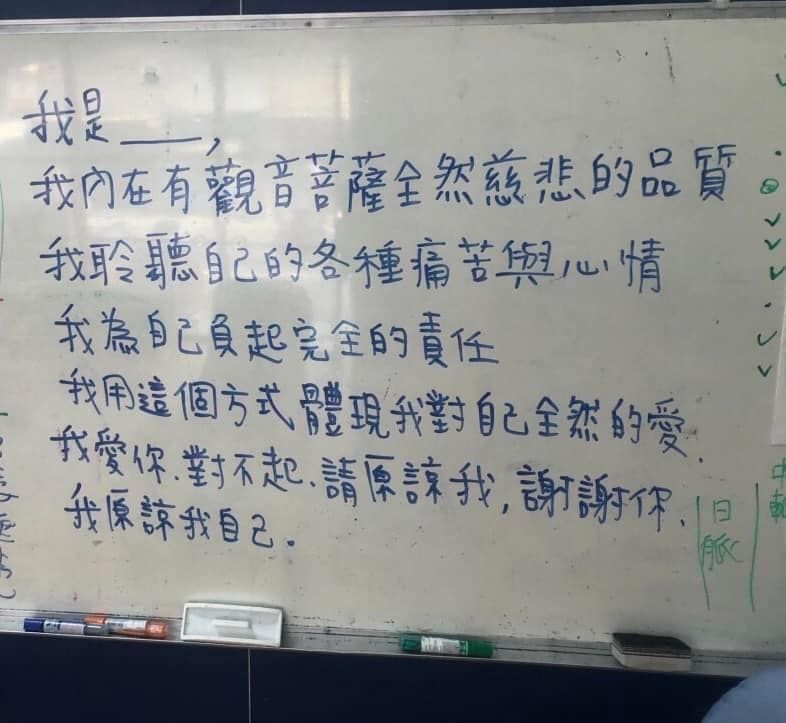 我是____,
我內在有觀音菩薩全然慈悲的品質
我聆聽自己的各種痛苦與心情
我為自己負起完全的責任
我用這個方式體現我對自己全然的愛.
我愛你.對不起.請原諒我,謝謝你.
我原諒我自己。
日
脈